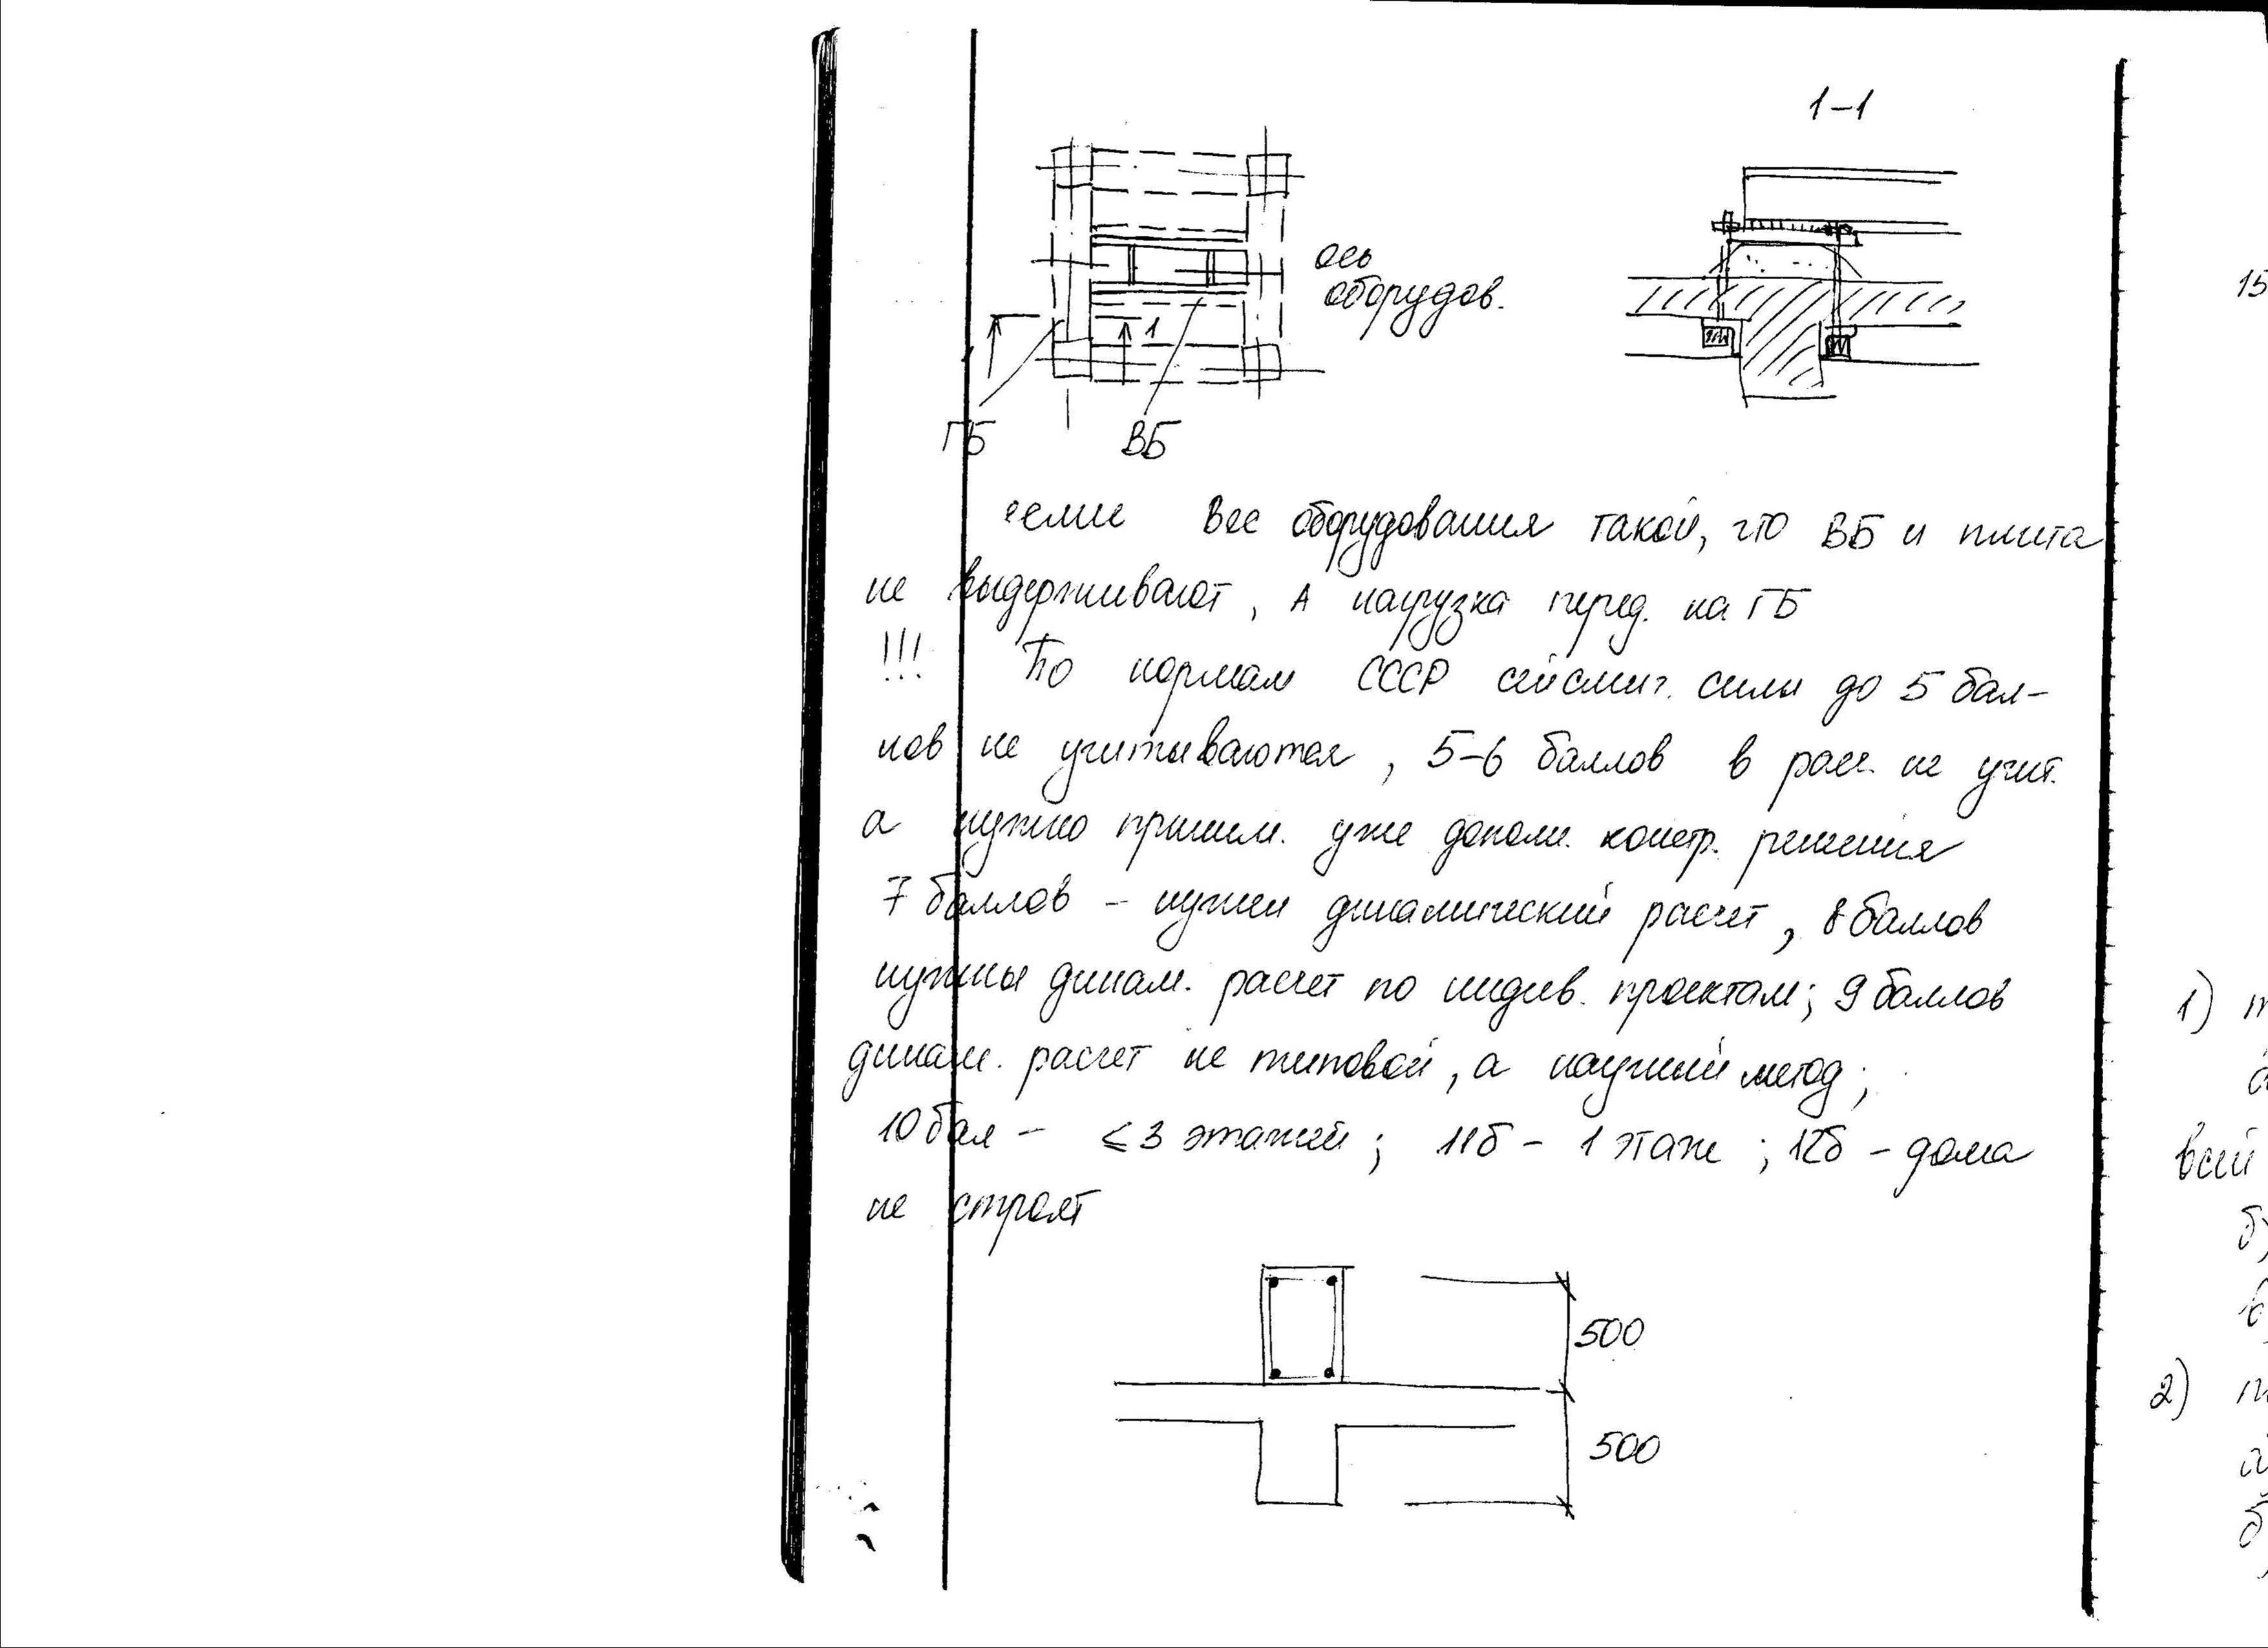 1-1
ось
оборудов.
1
ГБ
ВБ
если вес оборудования такой, что ВБ и плита
не выдерживают, А нагрузка перед. на ГБ
!!! По нормам СССР сейсмич. силы до 5 бал-
лов не учитываются, 5-6 баллов в расч. не учит.
а нужно приним. уже дополн. констр. решения
7 баллов - нужен динамический расчет, 8 баллов
нужны динам. расчет по индив. проектам; 9 баллов
динам. расчет не типовой, а научный метод;
10 бал - ≤ 3 этажей; 11б - 1 этаж; 12б - дома
не строят
500
500
15
1)
всей
2)